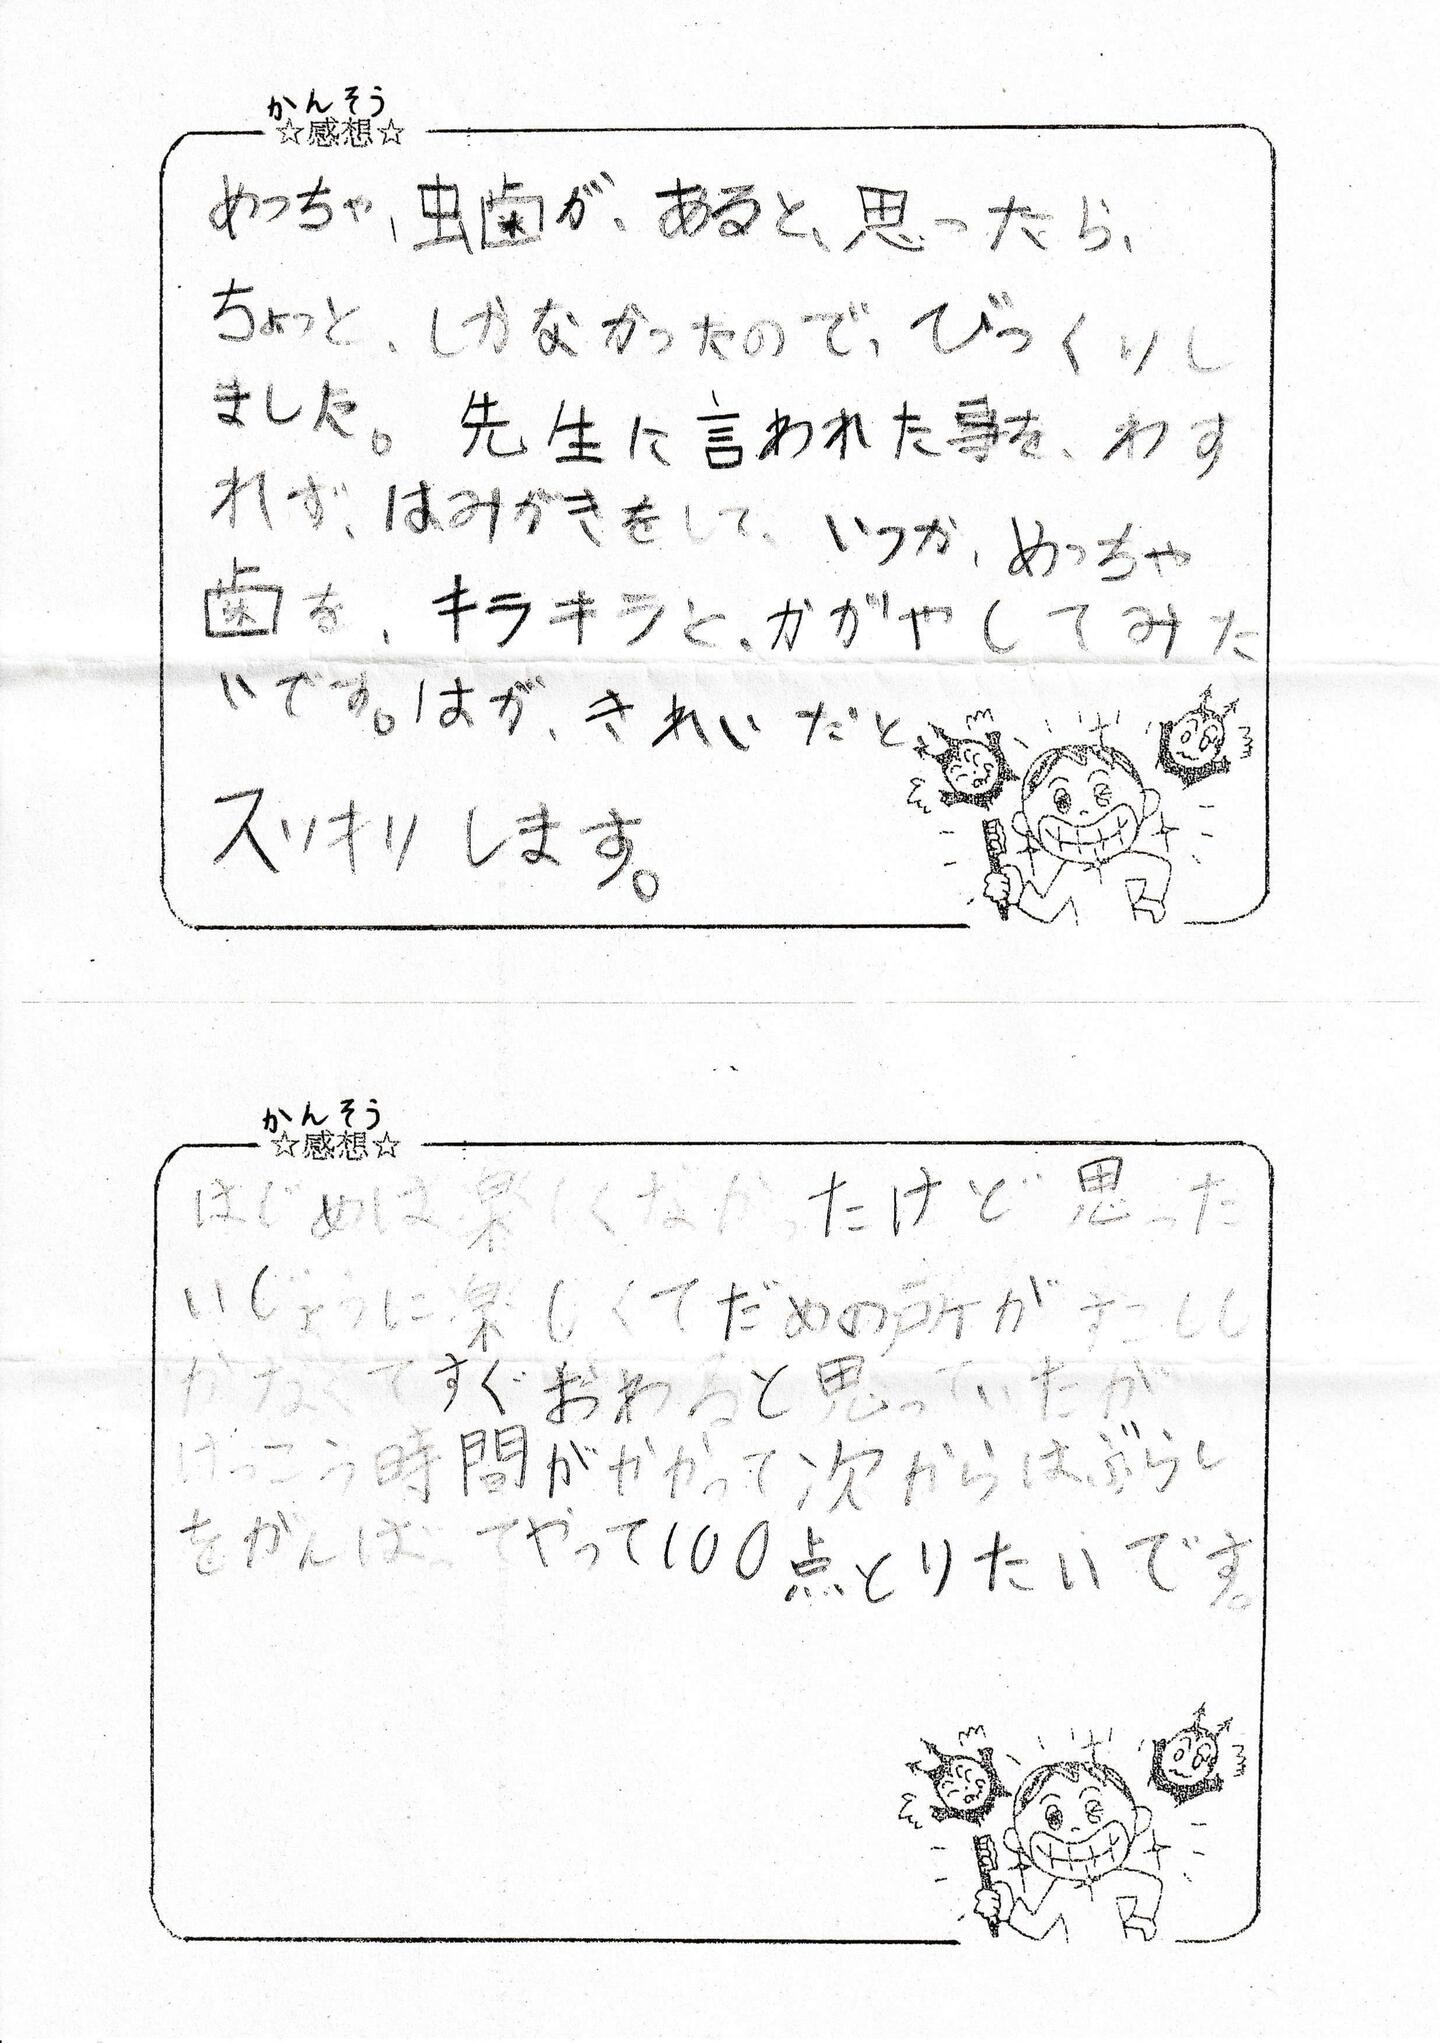 かんそう
☆感想☆
めっちゃ、虫歯が、あると、思ったら、
ちょっと、しかなかったので、びっくりし
ました。先生に言われた事を、わす
れず、はみがきをして、いつか、めっちゃ
歯を、キラキラと、かがやしてみた
いです。はが、きれいだと、
スッキリします。
かんそう
☆感想☆
はじめは楽しくなかったけど思った
いじょうに楽しくてだめの所がすこしし
かなくてすぐおわると思っていたが
けっこう時間がかかって次からはぶらし
をがんばってやって100点とりたいです。